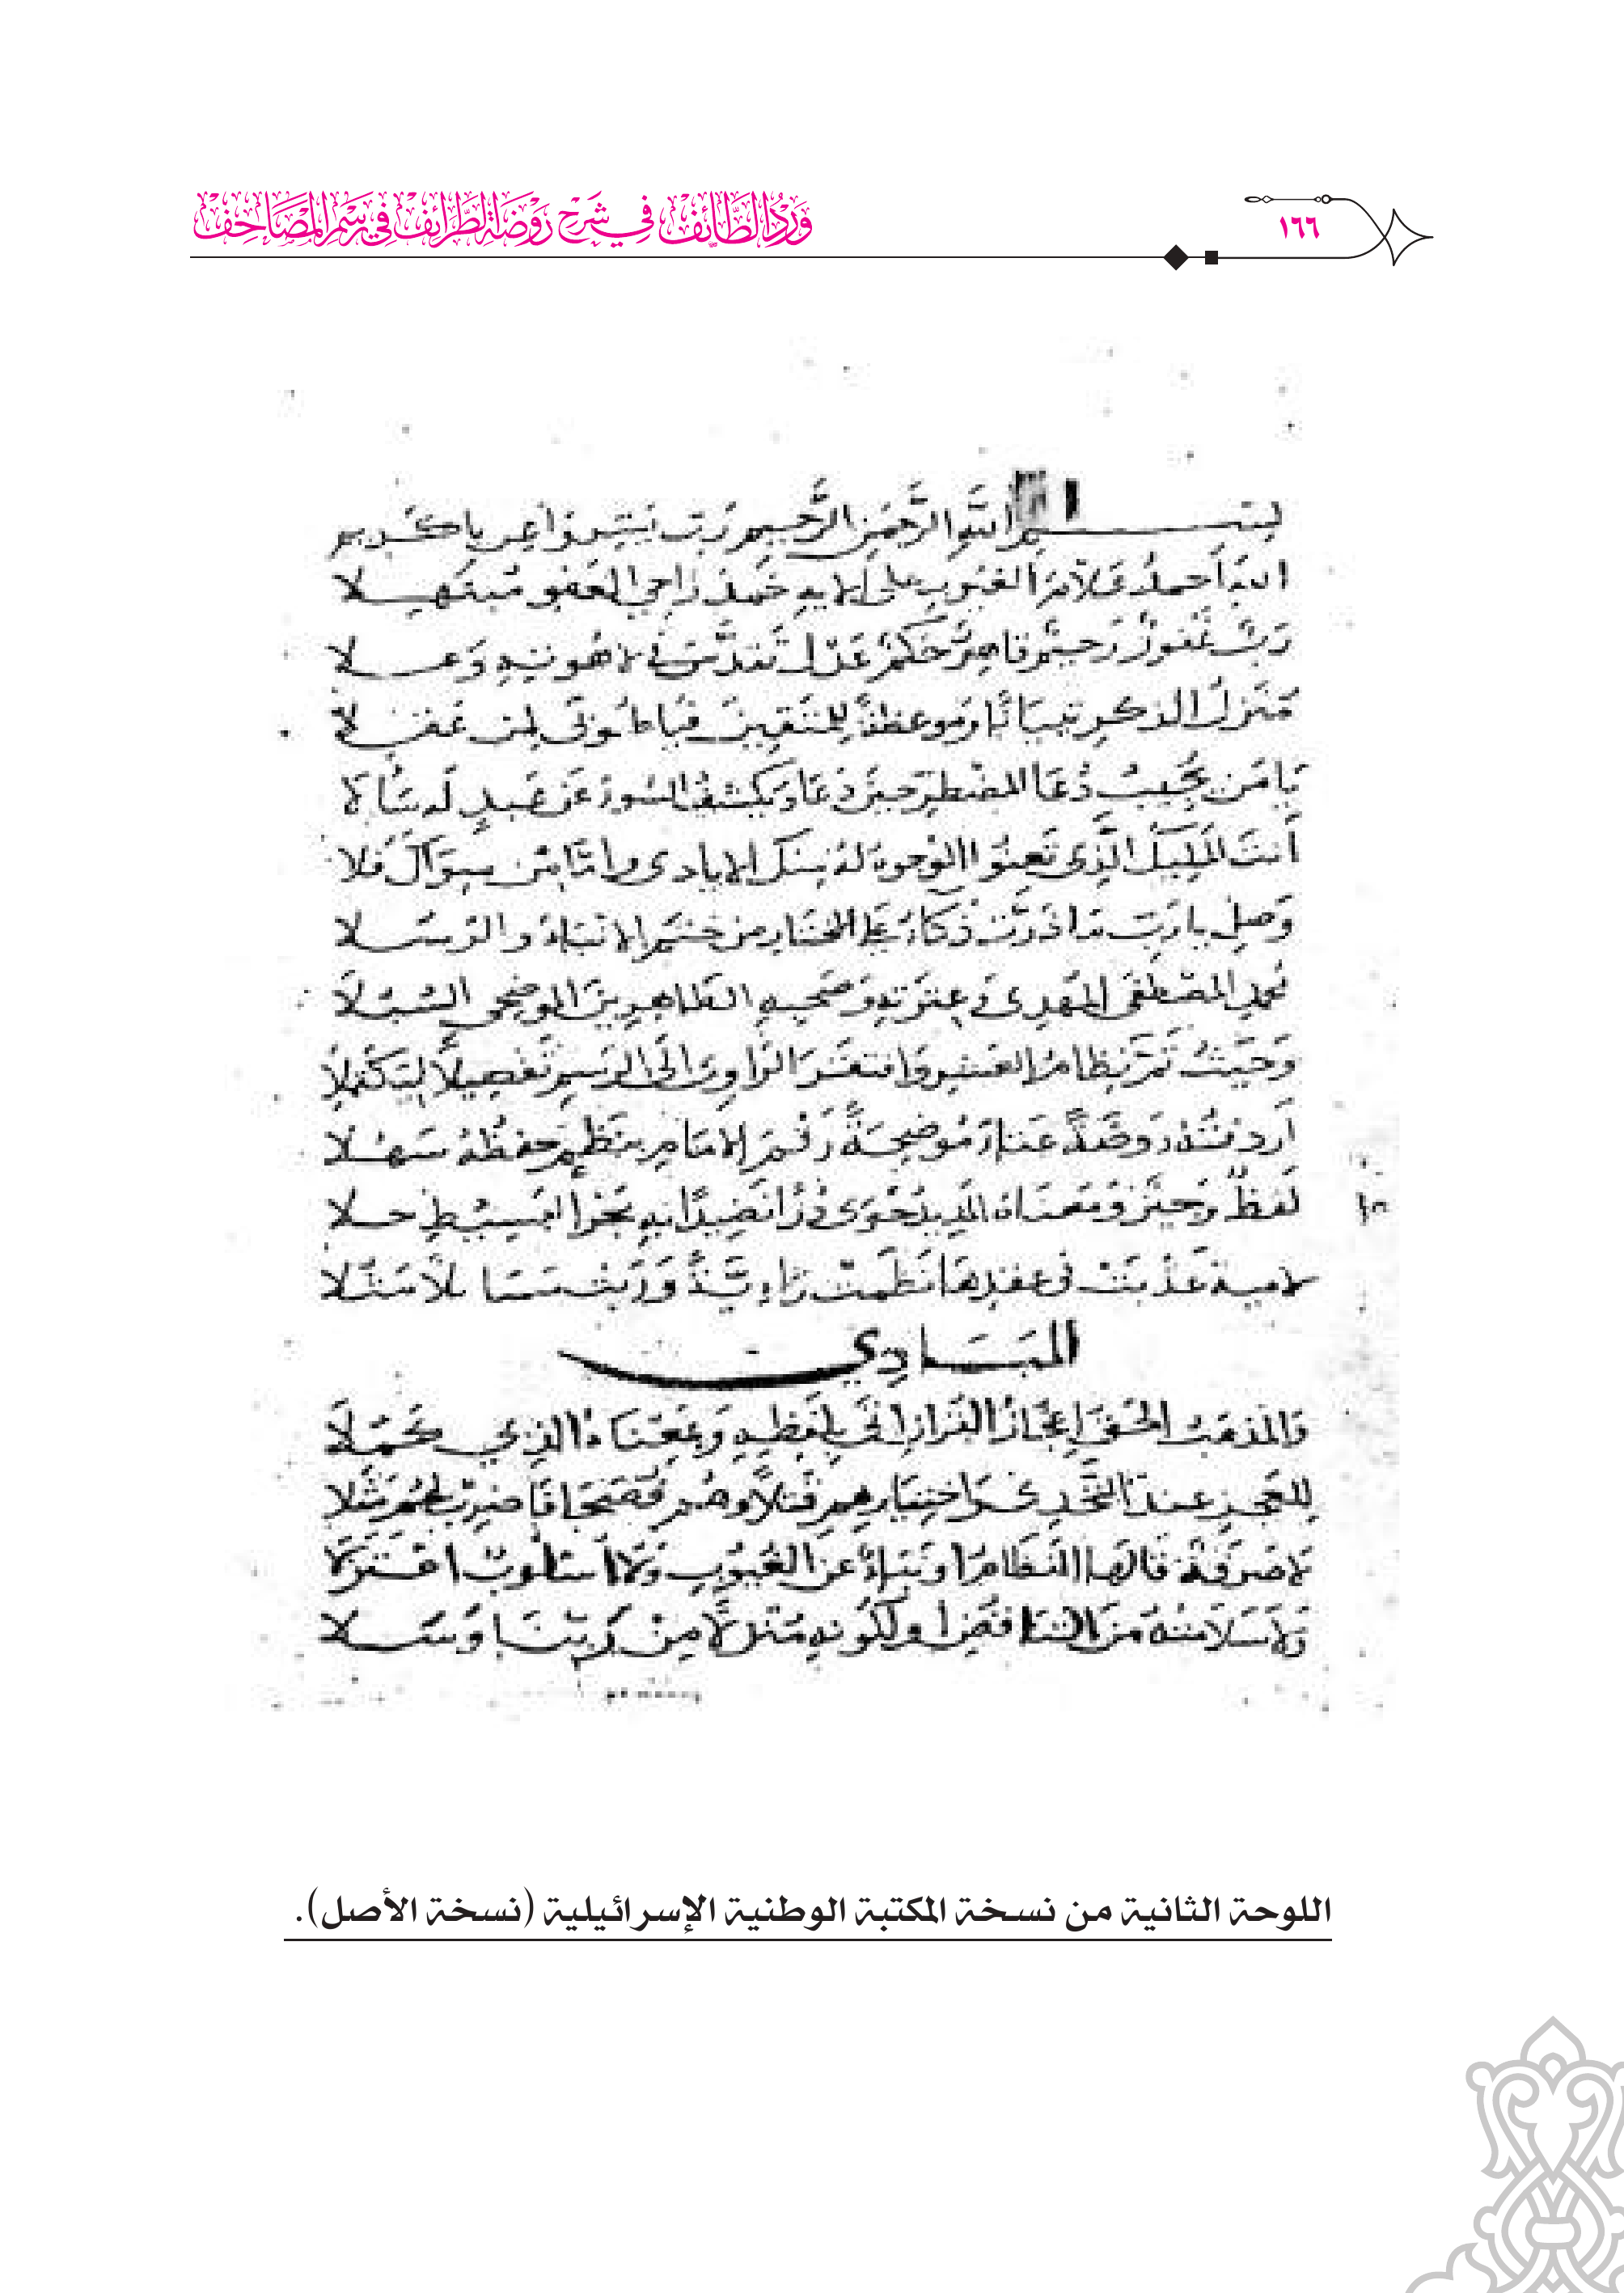 ١٦٦
وِرْدُ الطَّائِفْ فِي شَرْحِ رَوْضَةِ الطَّرَائِفْ فِي رَسْمِ المَصَاحِفْ
بسم الله الرَّحمن الرَّحيم رَبّ يَسّر وَأعِن يا كَريم
الله أحمدُ علّامَ الغيُوبِ على آلايهِ حَمدَ رَاجي العَفوِ مُبتَهِلا
رَبٌّ غَفورٌ رَحيمٌ قاهِرٌ حَكمٌ عَدْلٌ تقدَّسَ في لاهُوتيهِ وَعلا
مُنَزلُ الذكرِ تبيَانًا ومَوعظةً للمتَّقِينَ فيَا طُوبَى لِمَن
يَا مَن يُجيبُ دُعَا المضْطرِّ حينَ دَعَا وَيكشفُ السّوءَ عَن عَبدٍ لَه سَألا
أنتَ الذِي تَعنُو الوُجوهُ لهُ الايادي وأمَّا مَن سِوَاكَ فَلا
وَصلِ يا رَبّ مَا ذَرَّت ذُكَاءُ على المختَارِ مَن خَتَم الانبَاءَ والرّسُلا
محمدِ المصْطفَى المَهدِي وعِترَتهِ وَصَحبهِ الطاهِرِينَ الموضِحي السُّبُلا
وَحيثُ تمَّ نِظامُ وافتقَرَ الرَّاوي إلَى الرَّسمِ تَفصِيلًا
أردفتُهُ رَوضَةً غنَّاءَ مُوضِحَةً رَسْمَ الإمَامِ بنَظْمٍ حفظُهُ سَهُلا
لَفظٌ وَجيزٌ وَمعنَاهُ المَديدُ حَوَى دُرًّا نَضِيدًا بهِ بَحرُ البَسِيطِ حلا
لاميةٌ عَذُبَت في عِقدِهَا نُظِمَتْ رَاءِيَّةً وَرَبَتْ
المبَادِي
وَالمذهَبُ الحَقُّ إعجَازُ القُرَانِ أتَى بِلَفظِهِ وَبمَعنَاهُ الذِي كمُلا
لِلعَجزِ عندَ التَّحَدِي وَاختِيَارِهِمِ قَتلًا وهُم فُصَحَا بهم مَثَلا
لا صَرفَةٌ قالَهَا النَّظَّامُ أو نَبَاءٌ عَن الغيُوبِ وَلا أسلُوبُ
وَلا سَلامَتُهُ مِنَ التناقُضِ أو لِكَونِهِ مِن رَبّنَا
اللوحة الثانية من نسخة المكتبة الوطنية الإسرائيلية (نسخة الأصل).